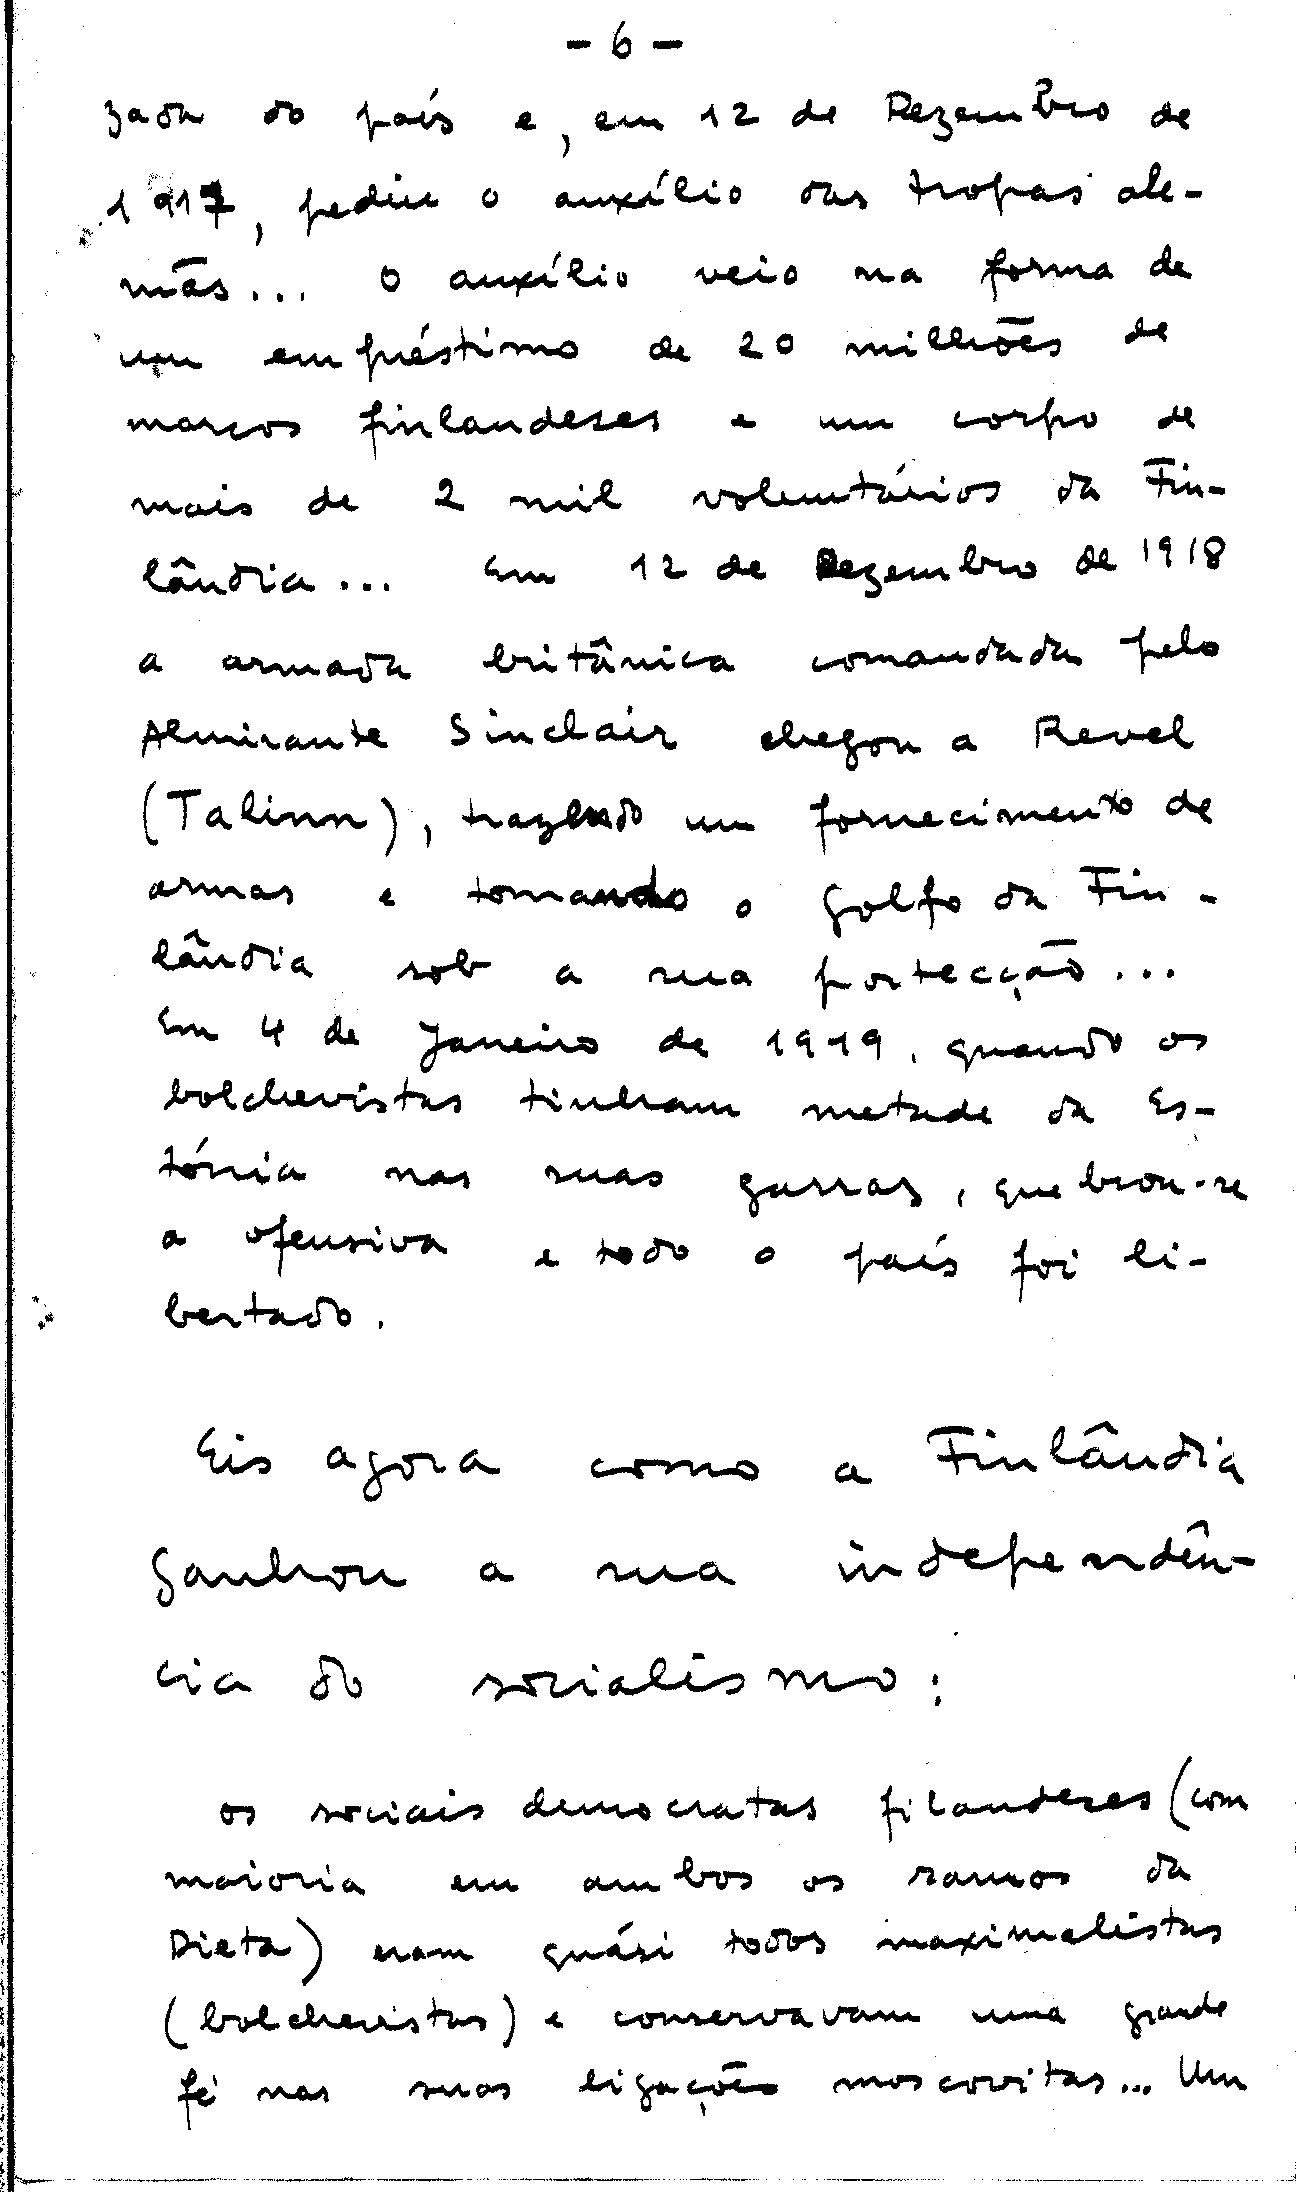 - 6 -
zada do país e, em 12 de Dezembro de
1917, pediu o auxílio das tropas ale-
mãs... O auxílio veio na forma de
um empréstimo de 20 milhões de
marcos finlandeses e um corpo de
mais de 2 mil voluntários da Fin-
lândia... Em 12 de Dezembro de 1918
a armada britânica comandada pelo
Almirante Sinclair chegou a Revel
(Talinn), trazendo um fornecimento de
armas e tomando o golfo da Fin-
lândia sob a sua portecção...
Em 4 de Janeiro de 1919, quando os
bolchevistas tinham metade da Es-
tónia nas suas garras, quebrou-se
a ofensiva e todo o país foi li-
bertado.
Eis agora como a Finlândia
ganhou a sua independên-
cia do socialismo:
os sociais democratas filandeses (com
maioria em ambos os ramos da
Dieta) eram quási todos maximalistas
(bolchevistas) e conservavam uma grande
fé nas suas ligações moscovitas... Um